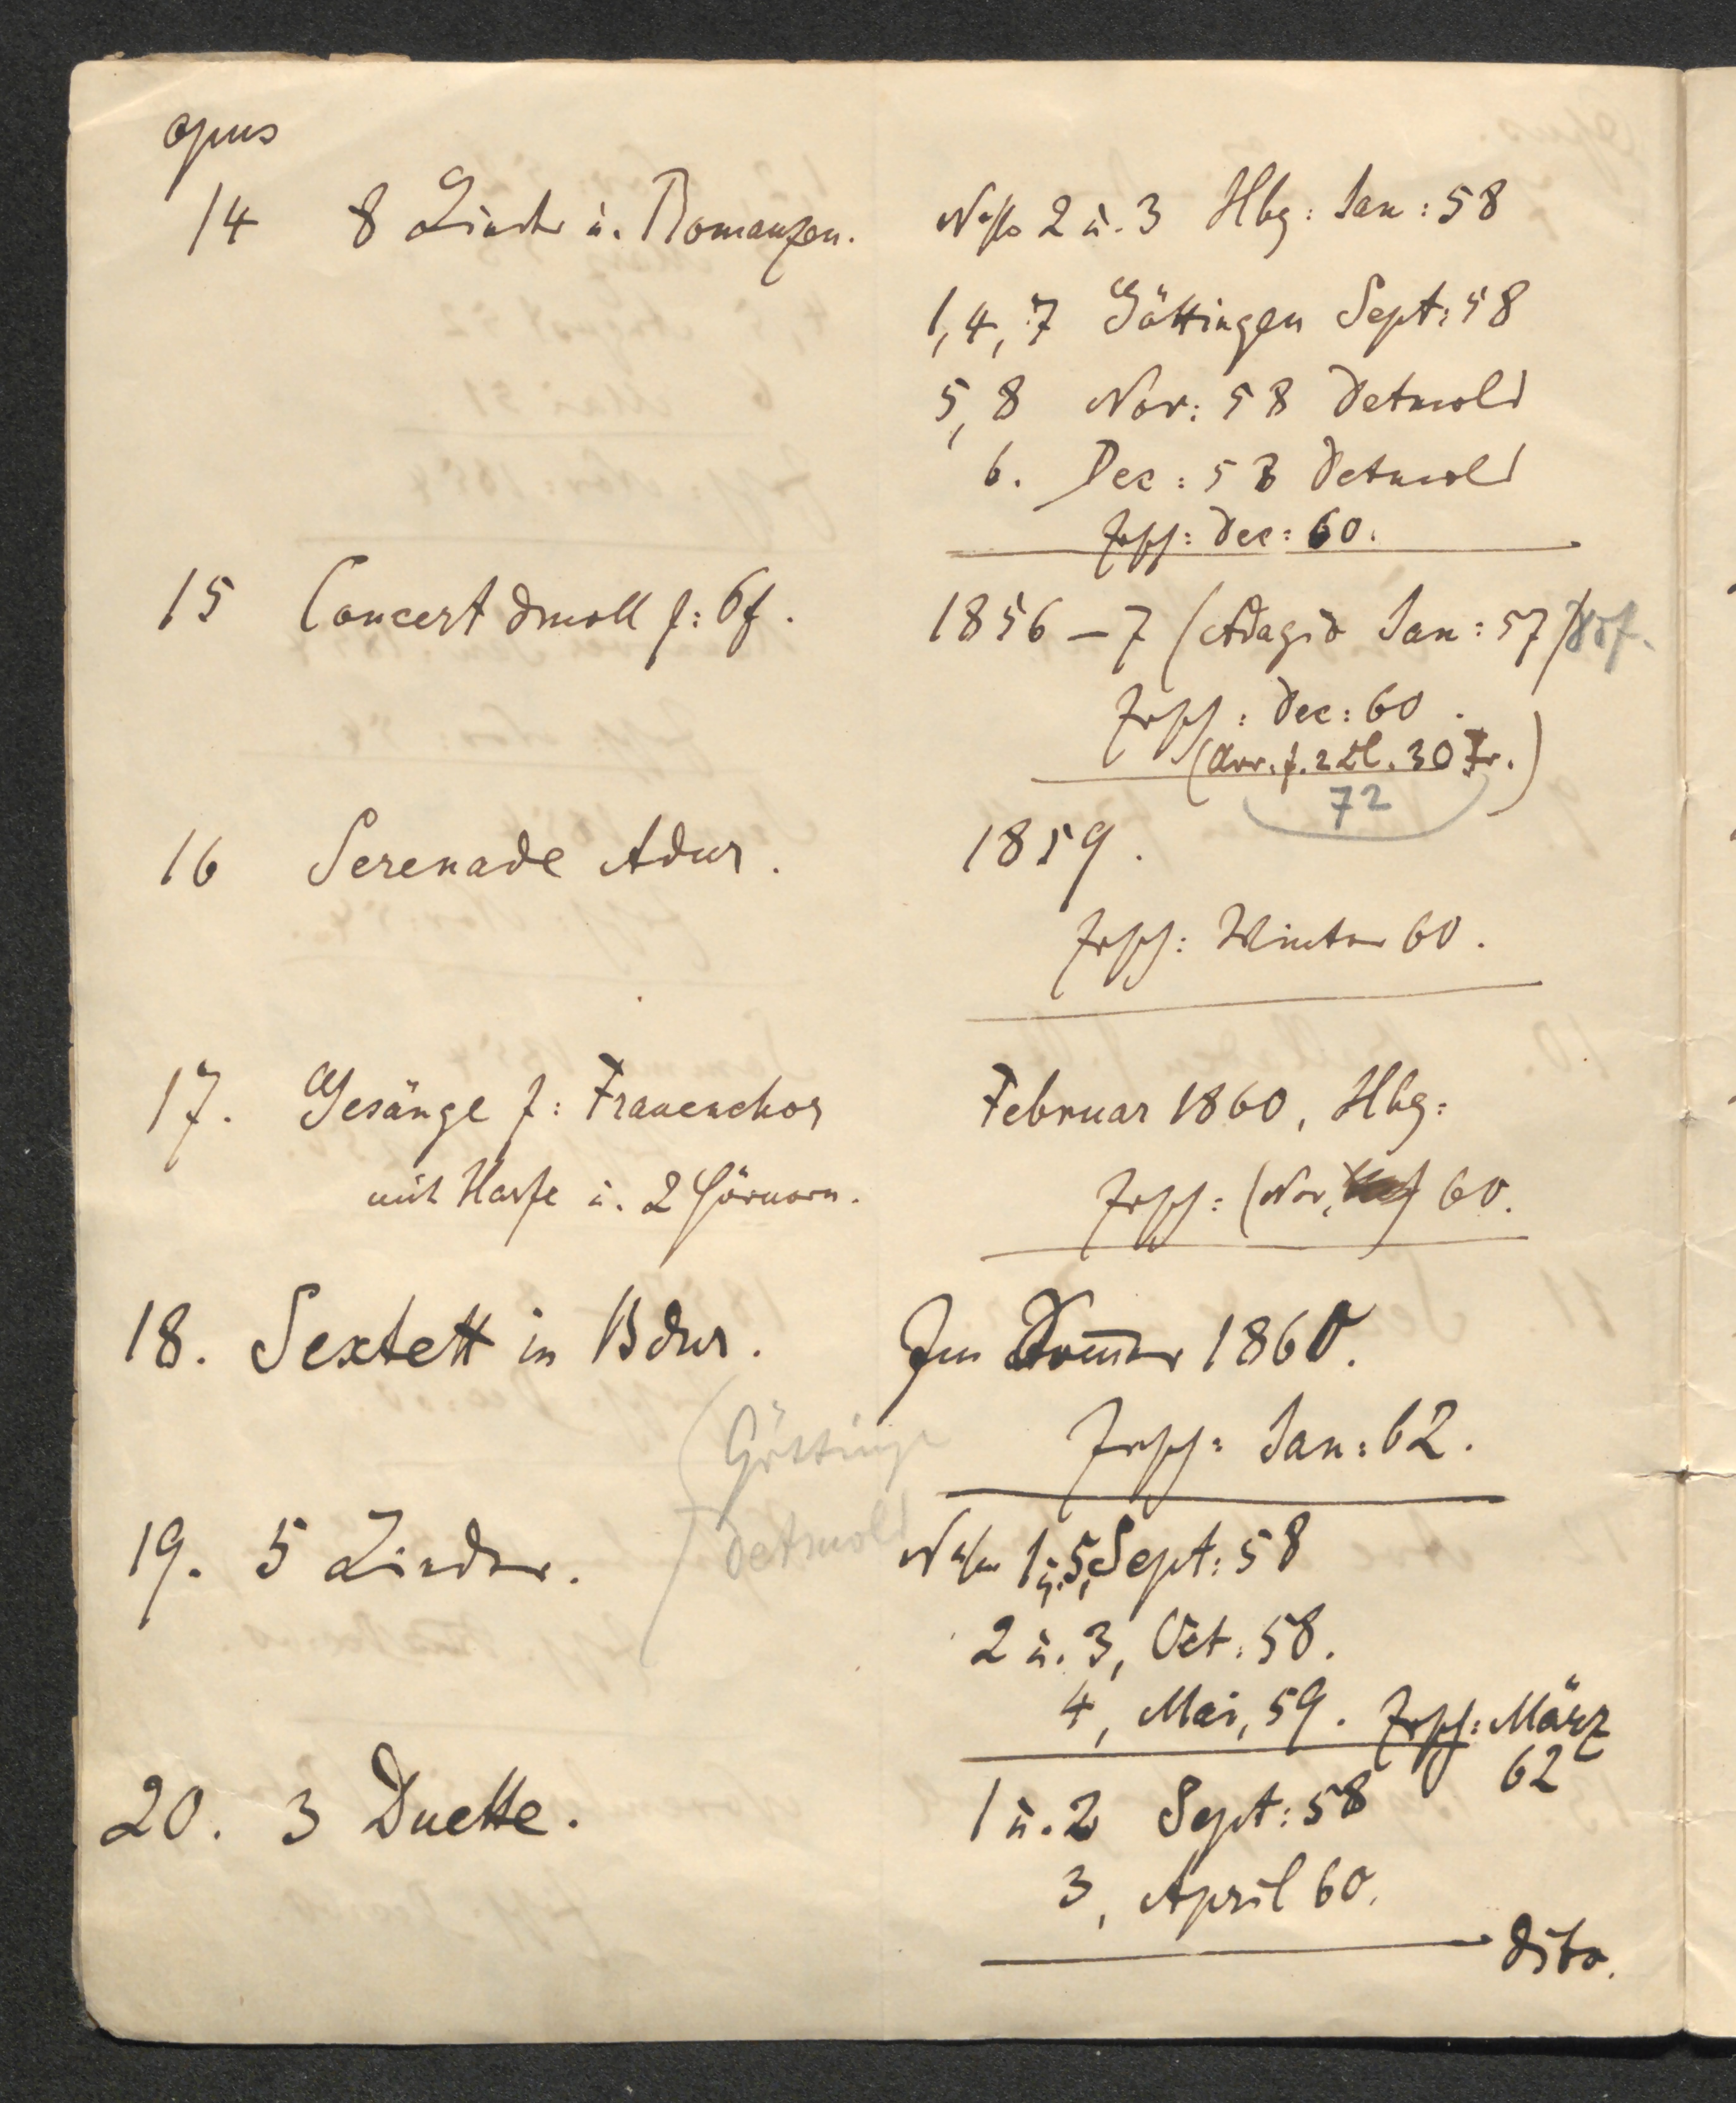 opus
14 8 Lieder u. Romanzen. No 2 u. 3 Hbg: Jan: 58
1, 4, 7 Göttingen Sept: 58
5, 8 Nov: 58 Detmold
6. Dec: 58 Detmold
Ersch: Dec: 60.
15 Concert dmoll f: Pf. 1856 – 7 (Adagio Jan: 57)
Ersch: Dec: 60.
(Arr. f. 2 Kl. 30 Fr.)
72
16 Serenade Adur. 1859.
Ersch: Winter 60.
17. Gesänge f: Frauenchor Februar 1860, Hbg:
mit Harfe u. 2 Hörnern. Ersch: (Nov, 60.
18. Sextett in Bdur. Im Sommer 1860.
(Göttingen Ersch: Jan: 62.
Detmold
19. 5 Lieder. No 1 u. 5, Sept: 58
2 u. 3, Oct: 58.
4, Mai, 59. Ersch: März
62
20. 3 Duette. 1 u. 2 Sept: 58
3, April 60.
dito.